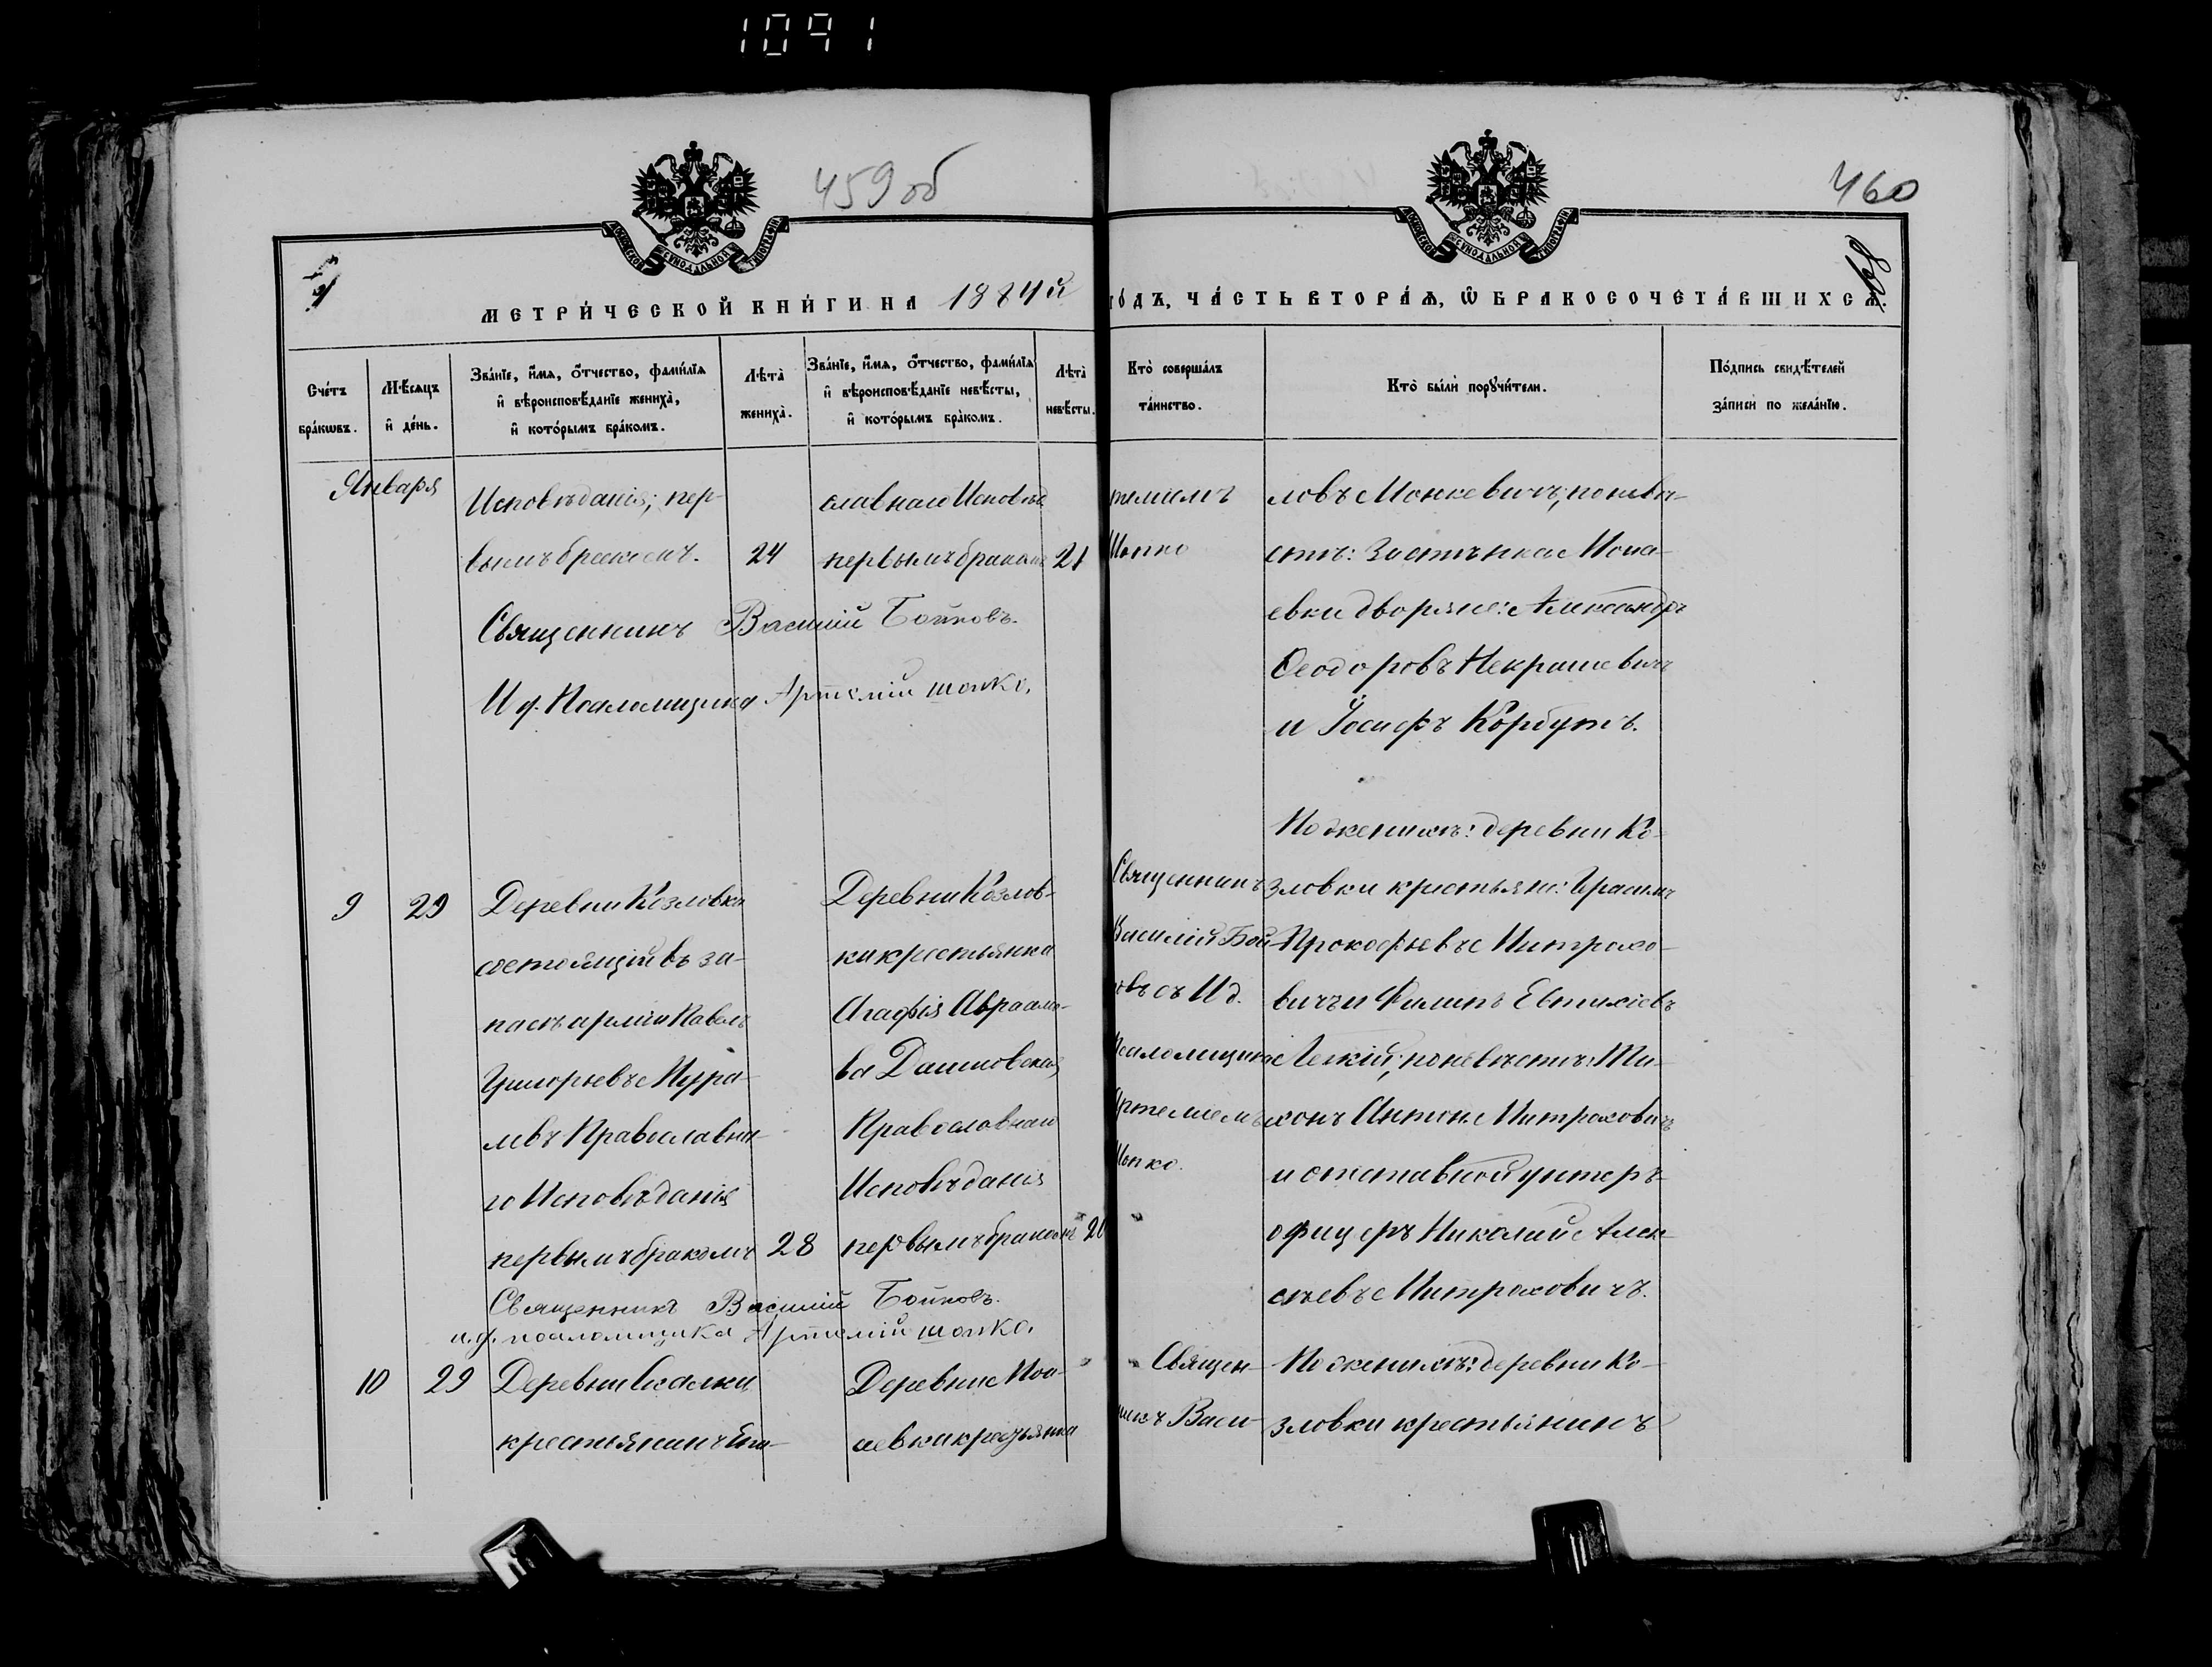 1091
459 об
460
МЕТРИ́ЧЕСКОЙ КНИ́ГИ НА 1884й
го́дъ, ча́сть втора́ѧ, ѡ҆ бракосочета́вшихсѧ.
Сче́тъ бра́кѡвъ.
Мѣ́сѧцъ и҆ де́нь.
Зва́нїе, и҆́мѧ, ѻ҆́тчество, фами́лїѧ
и҆ вѣроисповѣ́данїе жениха̀,
и҆ кото́рымъ бра́комъ.
Лѣта̀ жениха̀.
Зва́нїе, и҆́мѧ, ѻ҆́тчество, фами́лїѧ
и҆ вѣроисповѣ́данїе невѣ́сты,
и҆ кото́рымъ бра́комъ.
Лѣта̀ невѣ́сты.
Кто̀ соверша́лъ та́инство.
Кто̀ бы́ли пору́чи́тели.
По́дпись свидѣ́телей за́писи по жела́нїю.
Января
Исповѣданія; пер-
вымъ бракомъ.
24
славнаго Исповѣд
первымъ бракомъ
21
темiемъ
Шопко
ловъ Монкевичъ; по невѣ-
стѣ: Застѣнка Моса-
евки дворяне: Александръ
Ѳеодоровъ Некрашевичъ
и Іосифъ Корбутъ.
Священникъ Василій Бойковъ.
И. д. Псаломщика Артемій Шопко.
9
29
Деревни Козловки
состоящій въ за-
пасѣ арміи Павелъ
Григорьевъ Мура-
лвъ Православна-
го Исповѣданія
первымъ бракомъ
28
Деревни Козлов-
ки крестьянка
Агафія Авраамо-
ва Дашковская
Православнаго
Исповѣданія
первымъ бракомъ
Священникъ
Василій Бой-
ковъ съ И. д.
Псаломщика
Артеміемъ
Шопко.
По женихѣ: деревни Ко-
зловки крестьяне: Герасимъ
Прокофьевъ Митрахо-
вичъ и Филипъ Евтихіевъ
Легкій; по невѣстѣ: Ти-
хонъ Антон. Митраховичъ
и отставной унтеръ-
офицеръ Николай Алек-
сѣевъ Митраховичъ.
Священникъ Василій Бойковъ.
и. д. псаломщика Артемій Шопко.
10
29
Деревни Скалки
крестьянинъ
Деревни Моса-
аевки крестьянка
Священ-
никъ Васи-
По женихѣ: деревни Ко-
зловки крестьянинъ